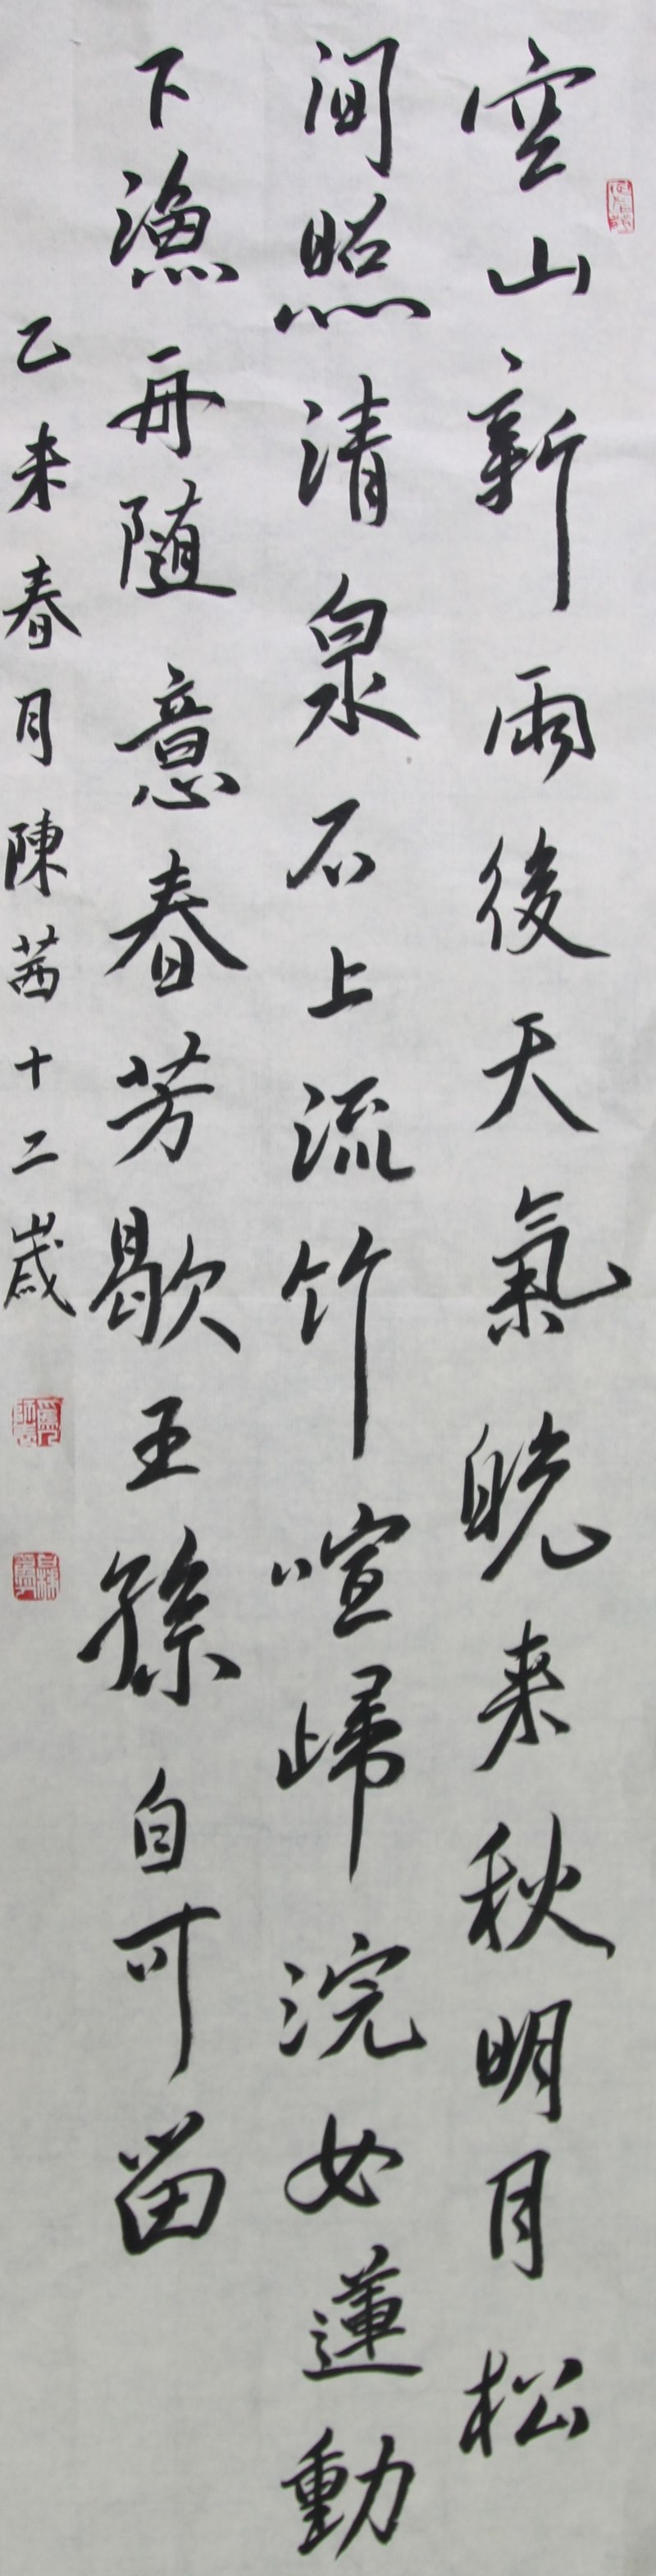 空山新雨後天氣晚来秋明月松
间照清泉石上流竹喧歸浣女蓮動
下漁舟随意春芳歇王孫自可留
乙未春月陳茜十二歲